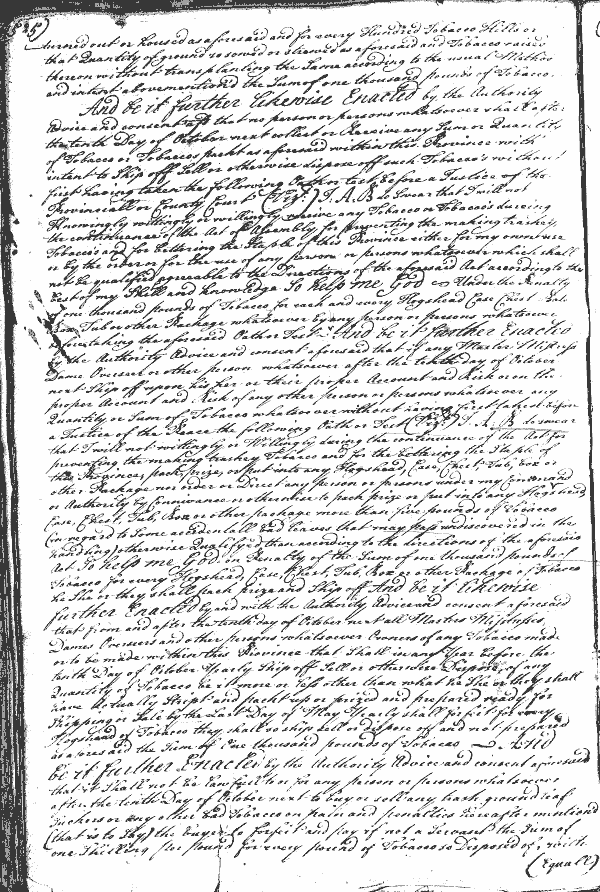 525)
turned out or housed as aforesaid and for every Hundred Tobacco Hills or
that Quantity of ground so sowed or strewed as aforesaid and Tobacco raised
thereon without transplanting the same according to the usual Method
and intent abovementioned the Sum of one thousand pounds of Tobacco.
And be it further likewise Enacted by the Authority
Advice and consent aforesd that no person or persons whatsoever shall after
the tenth Day of October next collect or Receive any Sum or Quantity
of Tobacco or Tobaccos packt as aforesaid within this Province with
intent to Ship off Sell or otherwise dispose off such Tobacco's without
first having taken the following Oath or test before a Justice of the
Provincial or County Court (Vizt.) I. A. B. do Swear that I will not
knowingly wittingly or willingly receive any Tobacco or Tobacco's dureing
the continuance of the Act of Assembly for preventing the making trashey
Tobacco's and for bettering the Staple of this Province either for my own use
or by the order or for the use of any person or persons whatsoever which shall
not be qualifyed agreeable to the Directions of the aforesaid Act according to the
best of my Skill and knowledge So help me God Under the Penalty
of one thousand pounds of Tobacco for each and every Hogshead Case Chest
Tub or other Package whatsoever by any person or persons whatsoever
the aforesaid Oath or Test And be it further Enacted
by the Authority Advice and consent aforesaid that if any Master Mistress
Dame Overseer or other person whatsoever after the tenth day of October
next Ship off upon his her or their proper Account and Risk or on the
proper Account and Risk of any other person or persons whatsoever any
Quantity or Sum of Tobacco whatsoever without having first taken before
a Justice of the Peace the following Oath or Test (Vizt.) I. A. B. do swear
that I will not wittingly or Willingly during the continuance of the Act for
preventing the making trashey Tobacco and for the bettering the Staple of
this Province, pack, prize, or put into any Hogshead Case, Chest, Tub, Box or
other Package nor order or Direct any person or persons under my Command
or Authority by Connivance or otherwise to pack prize or put into any Hogshead
Case, Chest, Tub, Box or other package more than five pounds of Tobacco
(in regard to some accidentall bad leaves that may pass undiscovered in the
handling) otherwise Qualifyed than according to the directions of the aforesaid
Act. So help me God, on Penalty of the Sum of one thousand pounds of
Tobacco for every Hogshead, Case, Chest, Tub, Box or other Package of Tobacco
he She or they shall pack prize and Ship off And be it likewise
further Enacted by and with the Authority Advice and consent aforesaid
that from and after the tenth day of October next all Masters Mistresses,
Dames Overseers and other persons whatsoever Owners of any Tobacco made
or to be made within this Province that Shall in any Year before the
tenth Day of October Yearly Ship off Sell or otherwise Dispose of any
Quantity of Tobacco be it more or less other than what he She or they shall
have actually Stript and packt up or prized and prepared ready for
Shipping or Sale by the last Day of May Yearly shall forfeit for every
Hogshead of Tobacco they shall so ship sell or dispose of and not prepared
as aforesaid the Sum of One thousand pounds of Tobacco And
be it further Enacted by the Authority Advice and consent aforesaid
that it shall not be Lawfull to or for any person or persons whatsoever
after the tenth Day of October next to buy or sell any trash, ground leaf
Suckers or any other bad Tobacco on pain and penalties hereafter mentioned
(that is to say) the buyer to forfeit and pay if not a Servant the Sum of
one Shilling per pound for every pound of Tobacco so disposed of, with
(Equall)